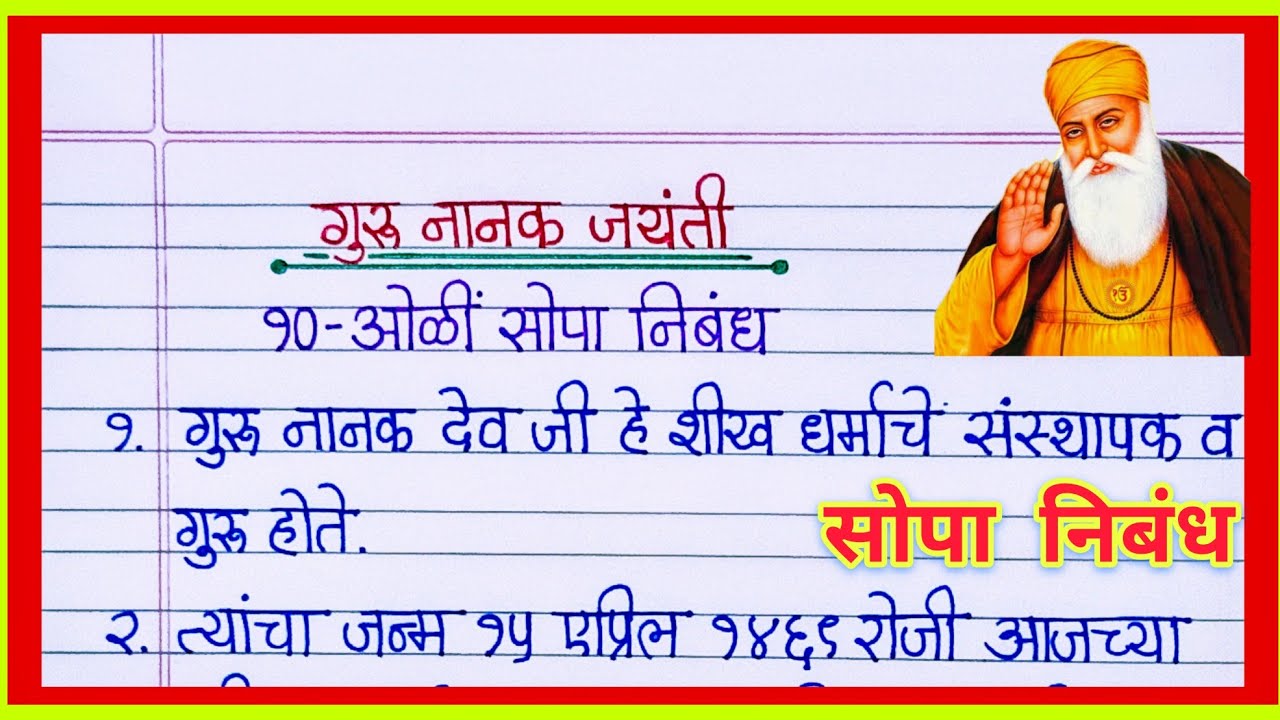 गुरु नानक जयंती
१०-ओळीं सोपा निबंध
१. गुरु नानक देव जी हे शीख धर्माचे संस्थापक व
गुरु होते.
सोपा निबंध
२. त्यांचा जन्म १५ एप्रिल १४६९ रोजी आजच्या